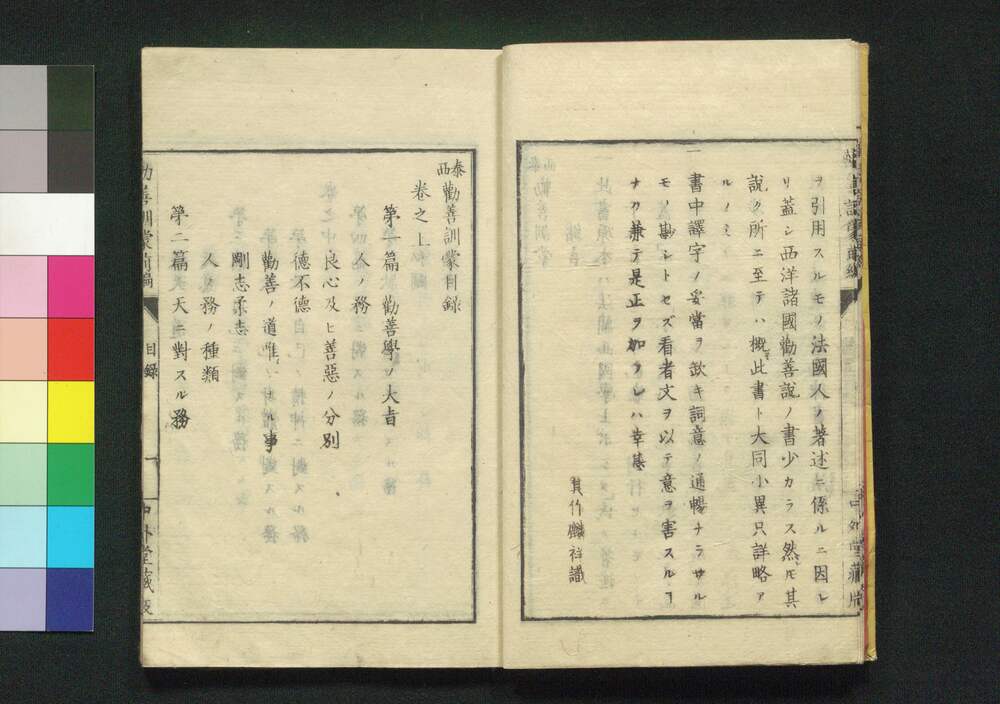 ヲ引用スルモノ法國人ノ著述ニ係ルニ因レ
リ蓋シ西洋諸國勸善説ノ書少カラス然𪜈其
説ク所ニ至テハ概此書ト大同小異只詳略ア
ルノミ
一
書中譯字ノ妥當ヲ欲キ詞意ノ通暢ナラサル
モノ勘シトセズ看者文ヲ以テ意ヲ害スルヿ
ナク兼テ是正ヲ加ヘレハ幸甚
箕作麟祥識
中外堂藏版
泰西勸善訓蒙目録
巻之上
第一篇 勸善學ノ大旨
人ノ務
良心及ヒ善惡ノ分別
德不德
勸善ノ道唯一ナル事
剛志柔志
人ノ務ノ種類
第二篇 天ニ對スル務
勸善訓蒙前編
目錄
一
中外堂藏版